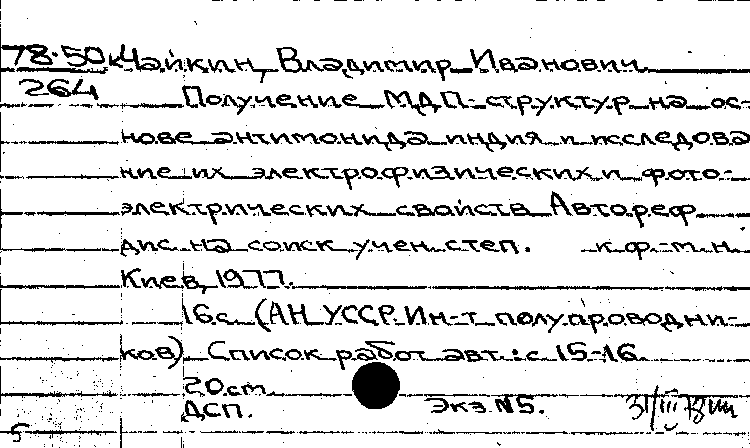 78-50к Чайкин, Владимир Иванович.
264
Получение МДП-структур на ос-
нове антимонида индия и исследова
ние их электрофизических и фото-
электрических свойств. Автореф.
дис. на соиск. учен. степ. к.ф.-м.н.
Киев, 1977.
16с. (АН УССР. Ин-т полупроводни-
ков). Список работ авт.: с 15-16.
20cm.
ДСП. Экз. №5. 31/III 78
5